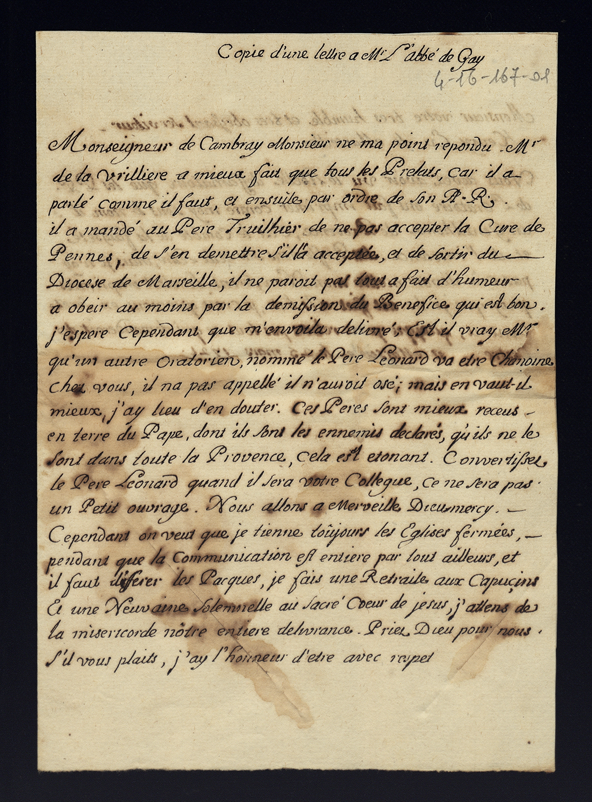 Copie d'une lettre a Mr. L'abbé de Gay
4-16-167-01
Monseigneur de Cambray Monsieur ne ma point repondu. Mr
de la Vrilliere a mieux fait que tous les Prelats, car il a
parlé comme il faut, et ensuite par ordre de son A. R.
il a mandé au Pere Truilhier de ne pas accepter la Cure de
Pennes, de s'en demettre s'il l'a acceptée, et de sortir du
Diocese de Marseille, il ne paroit pas tout a fait d'humeur
a obeir au moins par la demission du Benefice qui est bon.
j'espere Cependant que m'en voila delivré; Est il vray Mr
qu'un autre Oratorien, nommé le Pere Leonard va etre Chanoine
chez vous, il na pas appellé il n'auroit osé; mais en vaut-il
mieux, j'ay lieu d'en douter. Ces Peres sont mieux receus
en terre du Pape, dont ils sont les ennemis declarés, qu'ils ne le
sont dans toute la Provence, cela est etonant. Convertissez
le Pere Leonard quand il sera votre Collegue, ce ne sera pas
un Petit ouvrage. Nous allons a Merveille Dieumercy.
Cependant on veut que je tienne toûjours les Eglises fermées,
pendant que la Communication est entiere par tout ailleurs, et
il faut differer les Pacques, je fais une Retraite aux Capuçins
Et une Neuvaine Solemnelle au Sacré Coeur de jesus, j'attens de
la misericorde nôtre entiere delivrance. Priez Dieu pour nous.
s'il vous plaits, j'ay l'honneur d'etre avec respet